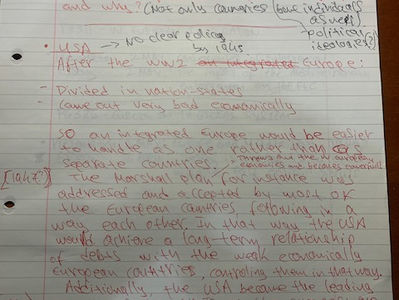 and why? (Not only countries (but individuals
as well
political
ideologies?)
• USA → No clear policy
by 1945.
After the WW2 an integrated Europe:
- Divided in nation-states
- Came out very bad economically
so an integrated Europe would be easier
to handle as one rather than as
separate countries.
[1947?] The Marshall plan, for instance was
addressed and accepted by most of
the European countries, following in a
way each other. In that way the USA
would achieve a long-term relationship
of debts with the weak economically
European countries, controling them in that way.
Additionally, the USA became the leading